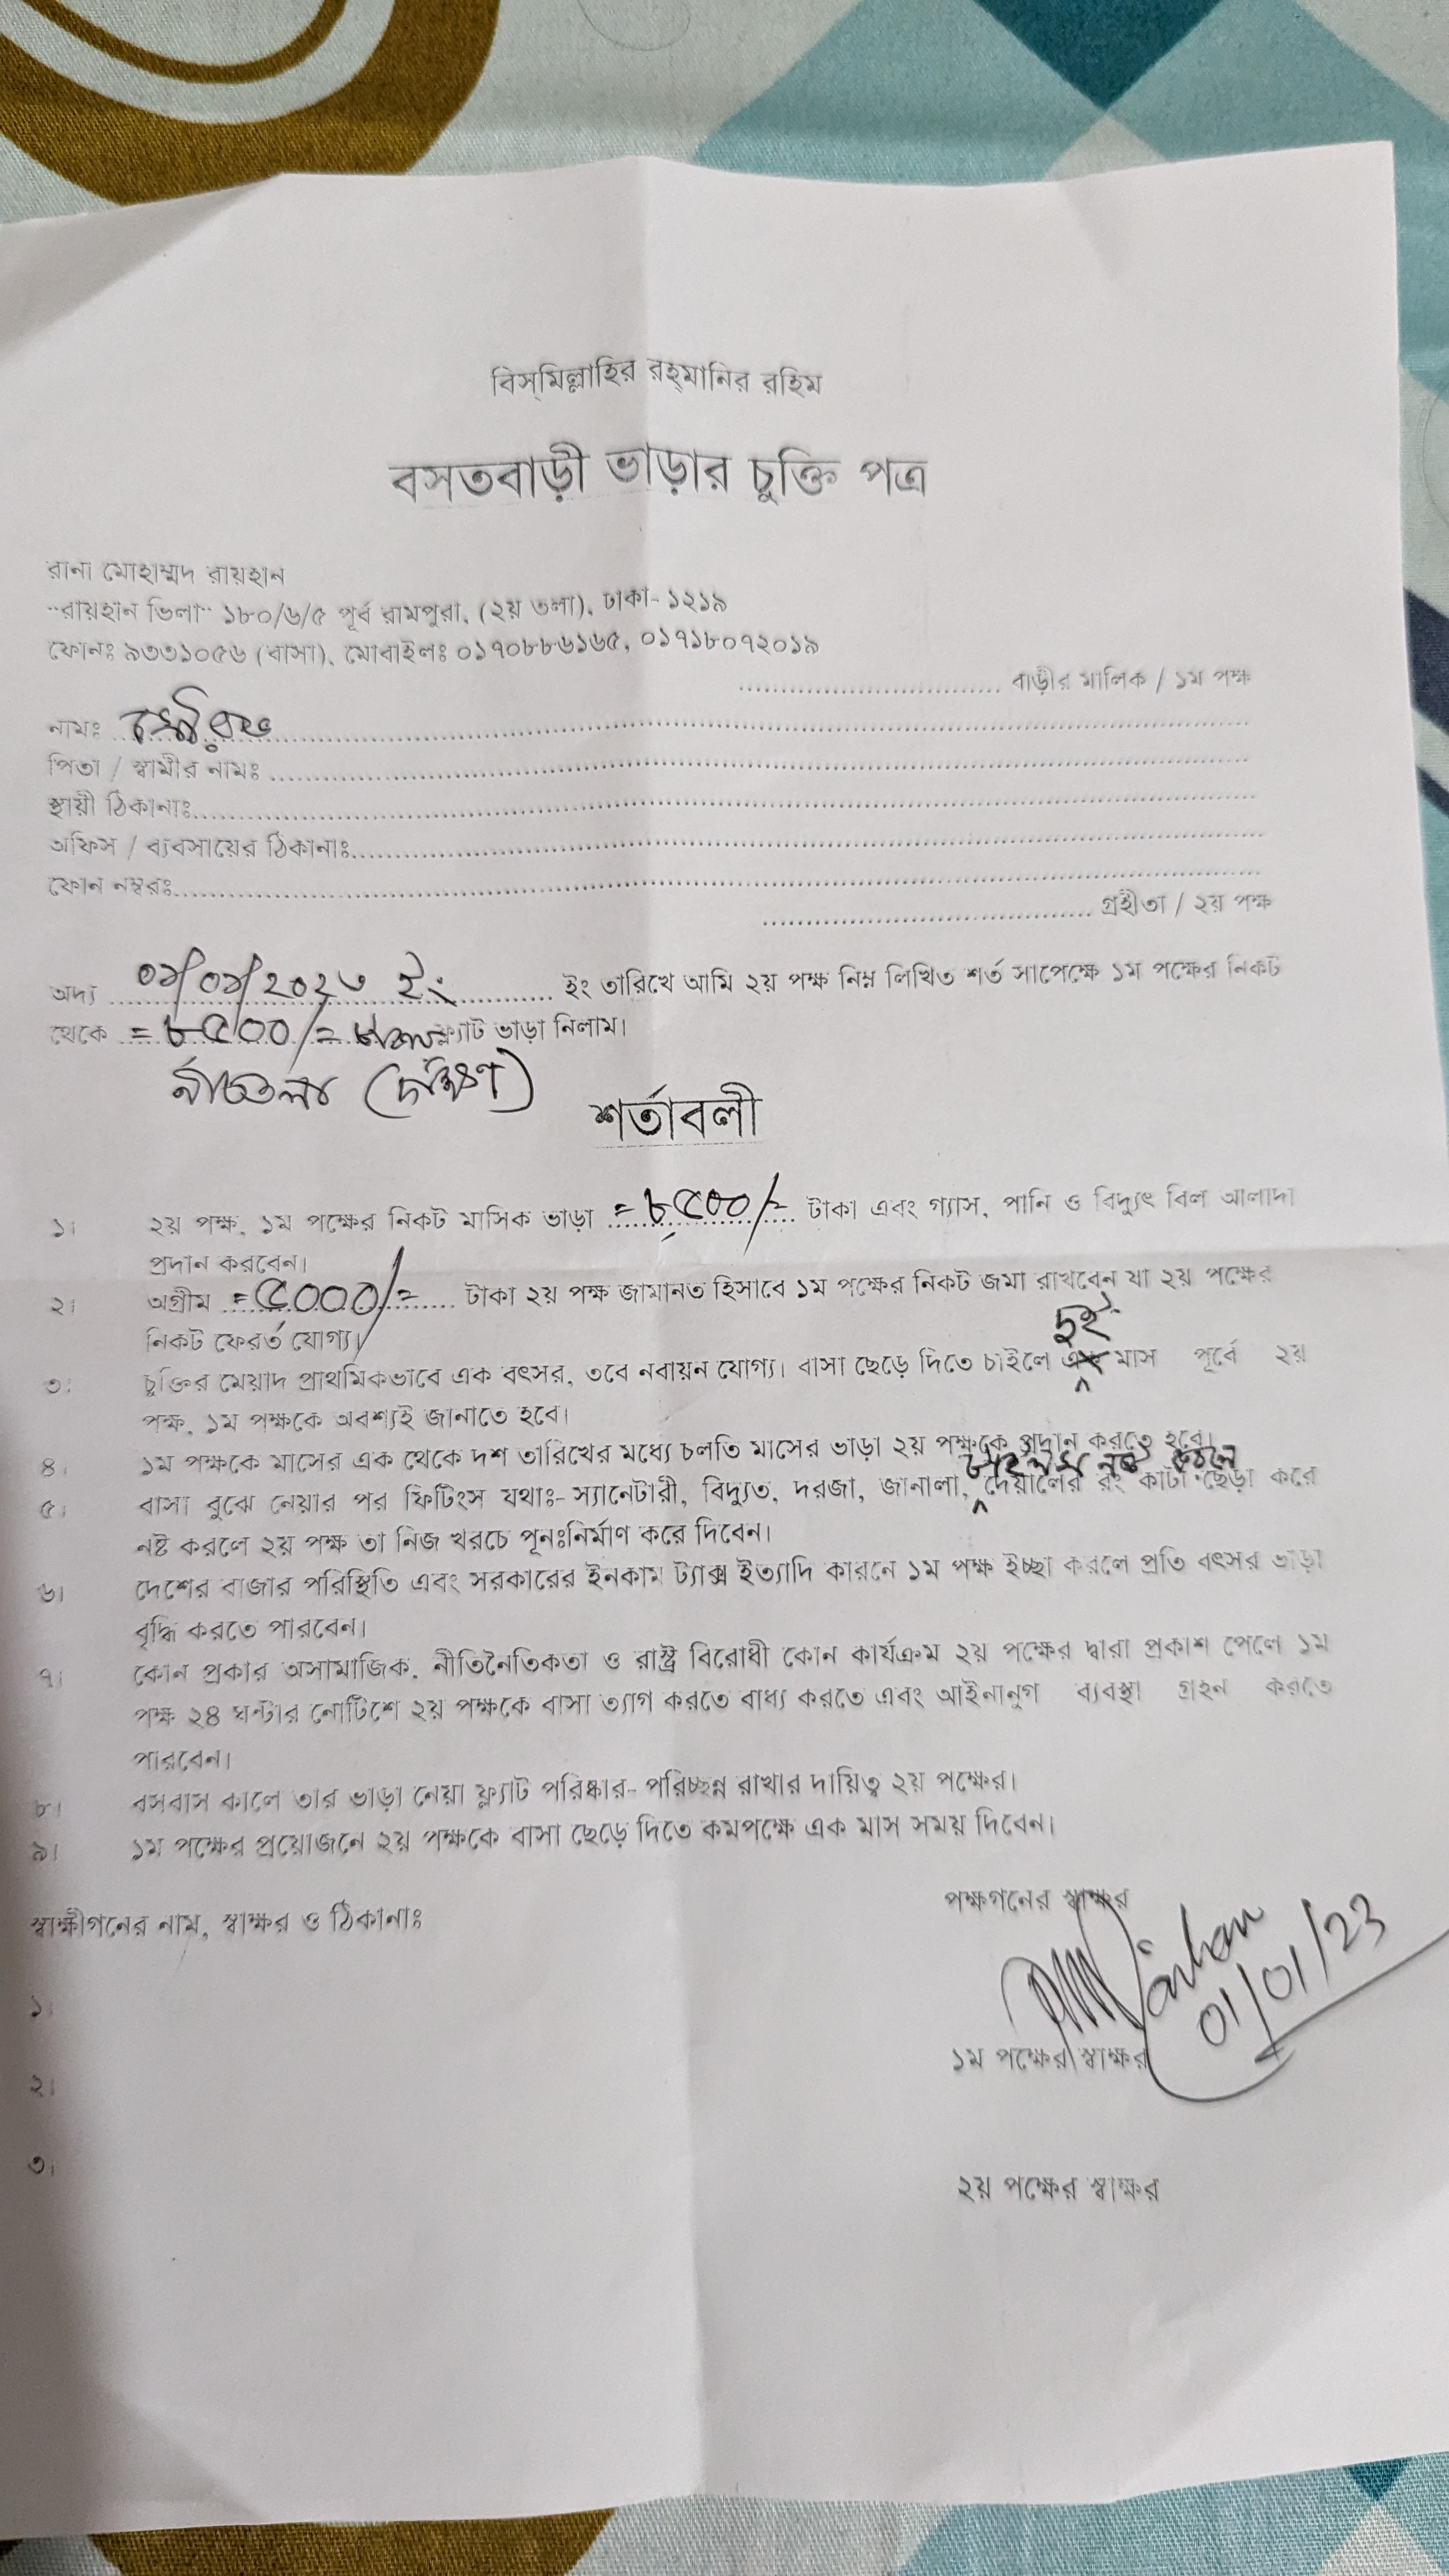 বিস্‌মিল্লাহির রহ্‌মানির রহিম
বসতবাড়ী ভাড়ার চুক্তি পত্র
রানা মোহাম্মদ রায়হান
"রায়হান ভিলা" ১৮০/৬/৫ পূর্ব রামপুরা, (২য় তলা), ঢাকা- ১২১৯
ফোনঃ ৯৩৩১০৫৬ (বাসা), মোবাইলঃ ০১৭০৮৮৬১৬৫, ০১৭১৮০৭২০১৯
বাড়ীর মালিক / ১ম পক্ষ
নামঃ
পিতা / স্বামীর নামঃ
স্থায়ী ঠিকানাঃ
অফিস / ব্যবসায়ের ঠিকানাঃ
ফোন নম্বরঃ
গ্রহীতা / ২য় পক্ষ
অদ্য ০১/০১/২০২৩ ইং ইং তারিখে আমি ২য় পক্ষ নিম্ন লিখিত শর্ত সাপেক্ষে ১ম পক্ষের নিকট
থেকে =৮৫০০/= ফ্ল্যাট ভাড়া নিলাম।
নীচতলা (দক্ষিণ)
শর্তাবলী
১। ২য় পক্ষ, ১ম পক্ষের নিকট মাসিক ভাড়া =৮৫০০/= টাকা এবং গ্যাস, পানি ও বিদ্যুৎ বিল আলাদা
প্রদান করবেন।
২। অগ্রীম =৫০০০/= টাকা ২য় পক্ষ জামানত হিসাবে ১ম পক্ষের নিকট জমা রাখবেন যা ২য় পক্ষের
নিকট ফেরর্ত যোগ্য।
দুই
৩। চুক্তির মেয়াদ প্রাথমিকভাবে এক বৎসর, তবে নবায়ন যোগ্য। বাসা ছেড়ে দিতে চাইলে এক মাস পূর্বে ২য়
পক্ষ, ১ম পক্ষকে অবশ্যই জানাতে হবে।
৪। ১ম পক্ষকে মাসের এক থেকে দশ তারিখের মধ্যে চলতি মাসের ভাড়া ২য় পক্ষকে প্রদান করতে হবে।
৫। বাসা বুঝে নেয়ার পর ফিটিংস যথাঃ- স্যানেটারী, বিদ্যুত, দরজা, জানালা, দেয়ালের রং কাটা ছেড়া করে
নষ্ট করলে ২য় পক্ষ তা নিজ খরচে পূনঃনির্মাণ করে দিবেন।
৬। দেশের বাজার পরিস্থিতি এবং সরকারের ইনকাম ট্যাক্স ইত্যাদি কারনে ১ম পক্ষ ইচ্ছা করলে প্রতি বৎসর ভাড়া
বৃদ্ধি করতে পারবেন।
৭। কোন প্রকার অসামাজিক, নীতিনৈতিকতা ও রাস্ট্র বিরোধী কোন কার্যক্রম ২য় পক্ষের দ্বারা প্রকাশ পেলে ১ম
পক্ষ ২৪ ঘন্টার নোটিশে ২য় পক্ষকে বাসা ত্যাগ করতে বাধ্য করতে এবং আইনানুগ ব্যবস্থা গ্রহন করতে
পারবেন।
৮। বসবাস কালে তার ভাড়া নেয়া ফ্ল্যাট পরিষ্কার- পরিচ্ছন্ন রাখার দায়িত্ব ২য় পক্ষের।
৯। ১ম পক্ষের প্রয়োজনে ২য় পক্ষকে বাসা ছেড়ে দিতে কমপক্ষে এক মাস সময় দিবেন।
পক্ষগনের স্বাক্ষর
স্বাক্ষীগনের নাম, স্বাক্ষর ও ঠিকানাঃ
01/01/23
১।
১ম পক্ষের স্বাক্ষর
২।
৩।
২য় পক্ষের স্বাক্ষর